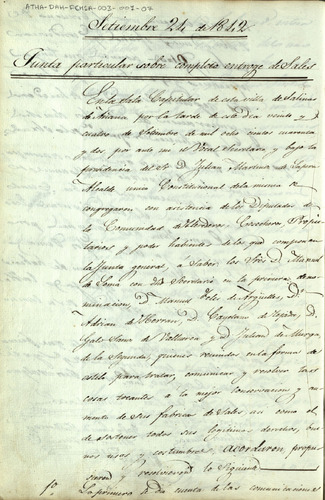 ATHA-DAH-FCHSA-002-001-07
Setiembre 24 de 1842
Junta particular sobre completo entroge de Sales
En la Sala Capitular de esta villa de Salinas
de Añana por la tarde de este dia veinte y
cuatro de Setiembre de mil ocho cientos cuarenta
y dos, por ante mi el Vocal Secretario y bajo la
presidencia del Sr. D. Julian Martinez de
Alcalde unico Constitucional de la misma se
congregaron, con asistencia de los Diputados de
la Comunidad de Herederos, Cosecheros Propie
tarios y poder habientes de los que componen
la Junta general, a saber los Sres. D. Manuel
de con el Secretario en la primera deno
minacion, D. Manuel de Arguelles, D.
Adrian de Herran, D. Cayetano de Tejada, D.
de Valluerca y D. Julian de Murga
de la Segunda, quienes reunidos en la forma de
estilo para tratar, comunicar y resolver las
cosas tocantes a la mejor conservacion y au
mento de sus fabricas de Sales, asi como el
de sostener todos sus legitimos derechos, bue
nos usos y costumbres, acordaron, propu
sieron y resolvieron lo Siguiente
1º. Lo primero se dio cuenta de las comunicaciones